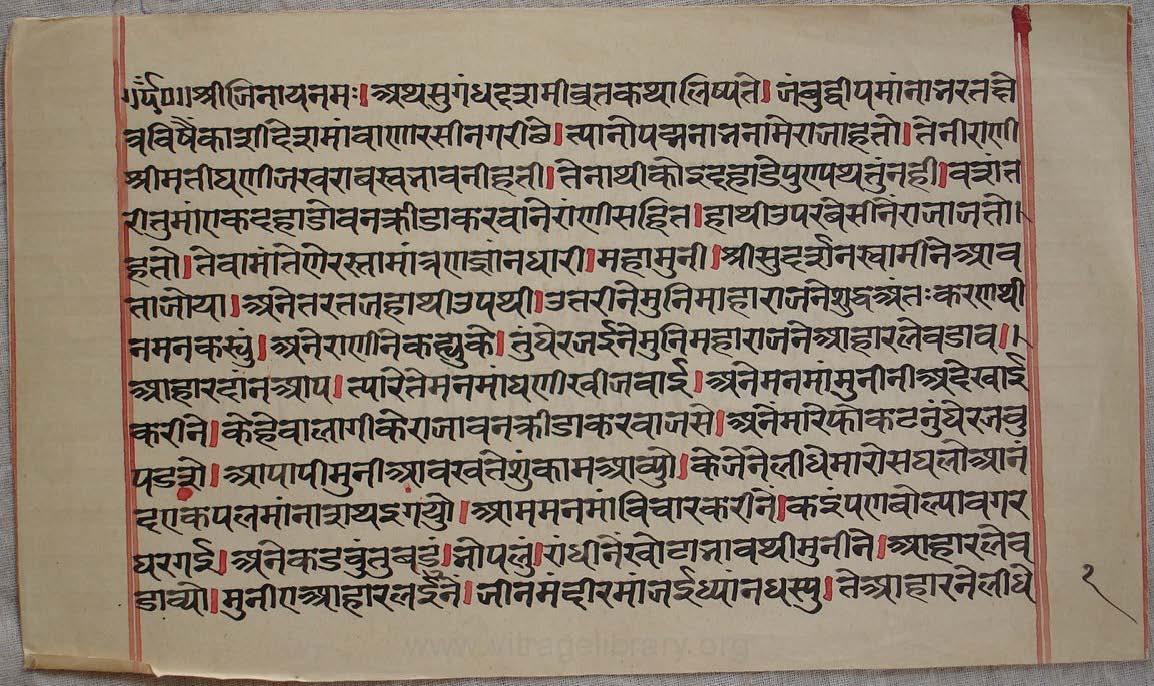 ॥र्द०॥श्रीजिनायनमः।अथसुगंधदशमीव्रतकथालिष्यते।जंबुद्वीपमांनाभरतक्षे
त्रविषैंकाशीदेशमांवाणारसीनगरीछे।त्यानोपद्मनाभनामेराजाहतो।तेनीराणी
श्रीमतीघणीजखराबस्वभावनीहती।तेनाथीकोइदहाडेपुण्यथतुंनही।वशंत
रीतुमांएकदहाडोवनक्रीडाकरवानेरांणीसहित।हाथीउपरबेसीनेराजाजतो।
हतो।तेवामांतेणेरस्तामांत्रणज्ञांनधारी।महामुनी।श्रीसुदर्शनस्वामीनेआव
ताजोया।अनेतरतजहाथीउपथी।उतरीनेमुनिमाहाराजनेशुद्धअंतःकरणथी
नमनकर्यु।अनेराणीनेकह्युके।तुंघेरजईनेमुनिमहाराजनेआहारलेवडाव॥
आहारदांनआप।त्यारेतेमनमांघणीखीजवाई।अनेमनमांमुनीनीअदेखाई
करीने।केहेवालागीकेराजावनक्रीडाकरवाजसे।अनेंमारेफोकटनुंघेरजवु
पडशे।आपापीमुनीआवखतेशुंकामआव्यो।केजेनेलीधेमारोसघलोआनं
दएकपलमांनाशथइगयो।आममनमांविचारकरीनें।कइंपणबोल्यावगर
घरगई।अनेकडवुंतुबडुं।नोपलुं।रांधीनेखोटाभावथीमुनीने।आहारलेव
डाव्यो।मुनीएआहारलईनें।जीनमंदीरमाजईध्यांनधर्यु।तेआहारनेलीधे
१
www.vitragelibrary.org